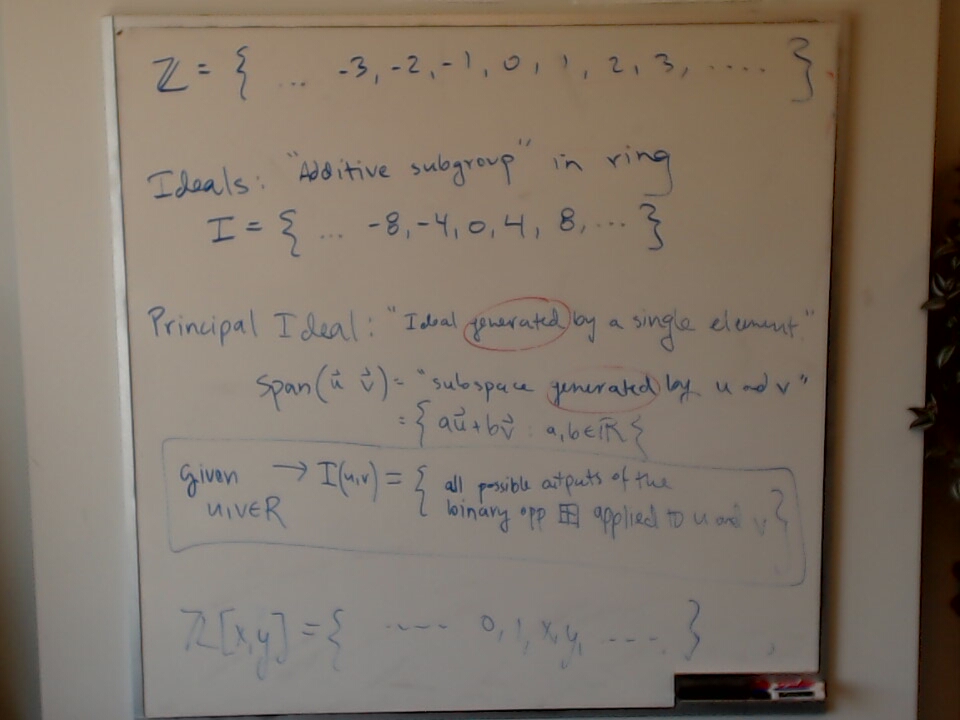 ℤ = { ... -3, -2, -1, 0, 1, 2, 3, ..... }
Ideals: "Additive subgroup" in ring
I = { ... -8, -4, 0, 4, 8, ... }
Principal Ideal: "Ideal generated by a single element"
Span(u⃗ v⃗) = "subspace generated by u and v"
= { au⃗ + bv⃗ : a, b ∈ ℝ }
Given → I(u,v) = { all possible outputs of the
u, v ∈ R binary opp ⊞ applied to u and v }
ℤ[x,y] = { ----- 0, 1, x, y, ---. }